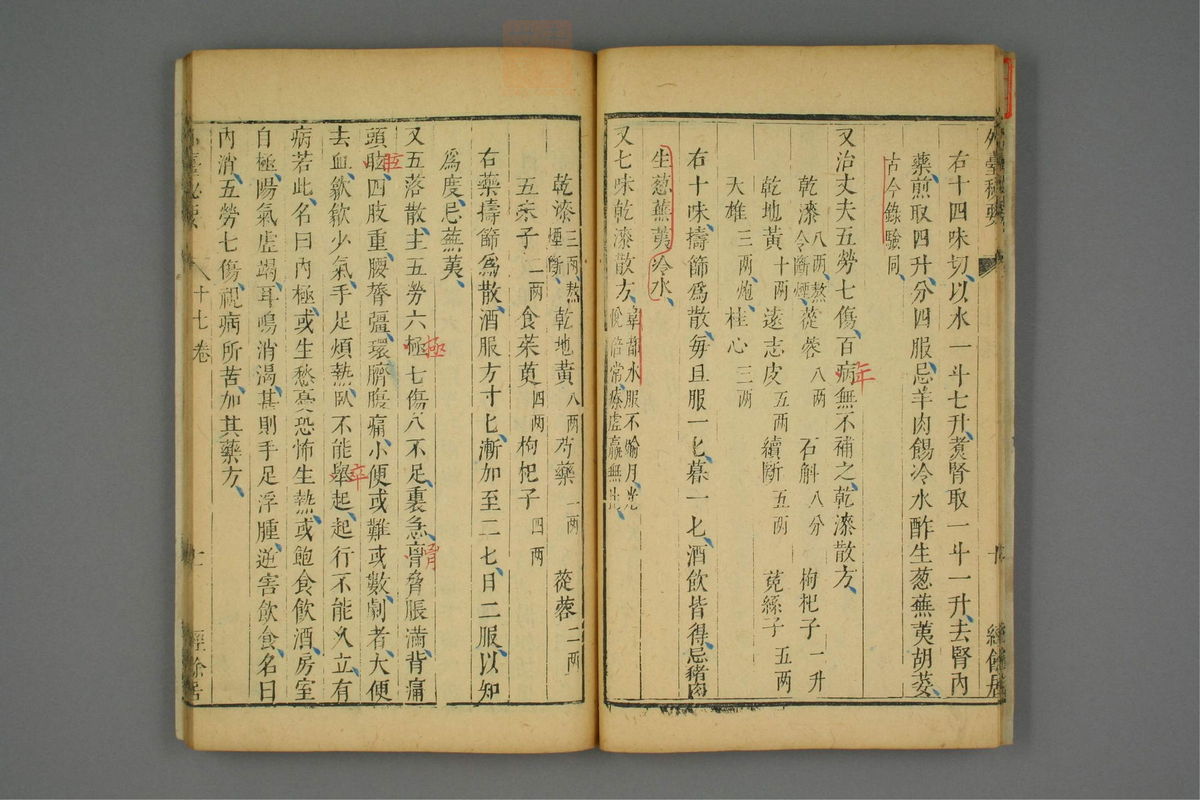 外臺秘要
經餘居
右十四味切、以水一斗七升、煑腎取一斗一升、去腎內
藥煎取四升、分四服、忌羊肉餳冷水酢生葱蕪荑胡荽、
古今錄驗同、
又治丈夫五勞七傷、百病無不補之、乾漆散方、
年
乾漆八兩、熬令斷煙、 蓯蓉八兩 石斛八分 枸杞子一升
乾地黃十兩 遠志皮五兩 續斷五兩 菟絲子五兩
天雄三兩、炮、 桂心三兩
右十味、擣篩爲散、每旦服一匕、暮一匕、酒飲皆得、忌豬肉
生葱蕪荑冷水、
又七味乾漆散方、韋都水服不踰月、光悅倍常、療虛羸無比、
乾漆三兩、熬煙斷、 乾地黃八兩 芍藥二兩 蓯蓉二兩
五味子二兩 食茱萸四兩 枸杞子四兩
右藥擣篩爲散、酒服方寸匕、漸加至二匕、日二服、以知
爲度、忌蕪荑、
又五落散、主五勞六極七傷八不足、裏急、胷脅脹滿、背痛
極
胷
頭眩、四肢重、腰膂彊、環臍腹痛、小便或難或數、劇者、大便
眩
去血、歙歙少氣、手足煩熱、臥不能舉起、起行不能久立、有
卒
病若此、名曰內極、或生愁憂恐怖生熱、或飽食飲酒、房室
自極、陽氣虛竭、耳鳴消渴、甚則手足浮腫、逆害飲食、名曰
內消、五勞七傷、視病所苦、加其藥方、
外臺秘要
十七卷
十一
經餘居